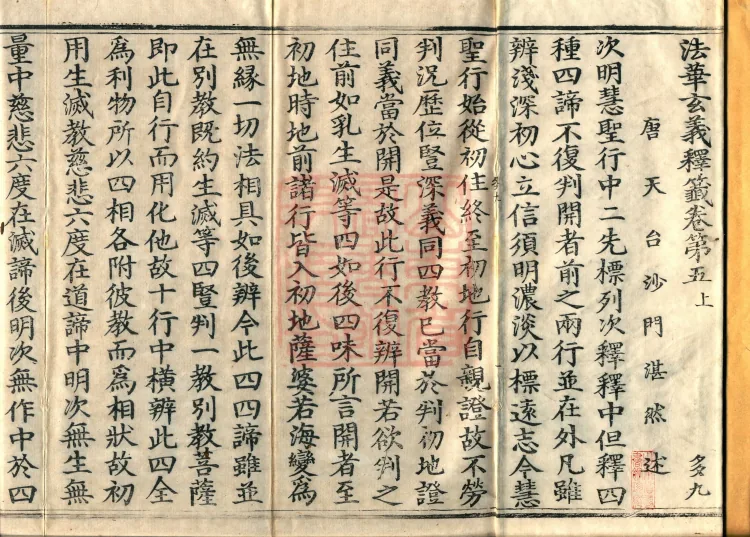 法華玄義釋籤卷第五上
多九
唐天台沙門湛然述
次明慧聖行中二先標列次釋釋中但釋四
種四諦不復判開者前之兩行並在外凡雖
辨淺深初心立信須明濃淡以標遠志今慧
聖行始從初住終至初地行自親證故不勞
判況歷位豎深義同四教已當於判初地證
同義當於開是故此行不復辨開若欲判之
住前如乳生滅等四如後四味所言開者至
初地時地前諸行皆入初地薩婆若海變為
無緣一切法相具如後辨今此四四諦雖並
在別教既約生滅等四豎判一教別教菩薩
即此自行而用化他故十行中橫辨此四全
為利物所以四相各附彼教而為相狀故初
用生滅教慈悲六度在道諦中明次無生無
量中慈悲六度在滅諦後明次無作中於四